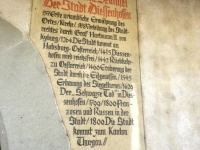 Der Stadt Diessenhofen
erste urkundliche Erwähnung des
Ortes/Kirche/
rechtes durch Graf Hartmann III. von
Kyburg/1264 Die Stadt kommt an
Habsburg-Oesterreich/1415 Diessen-
hofen wird reichsfrei/1442 Rückkehr
zu Oesterreich/1460 Eroberung der
Stadt durch die Eidgenossen/
Der „Schwarze Tod" in Dies-
senhofen/1799/1800 Fran-
zosen und Russen in der
Stadt/1800 Die Stadt
kommt zum Kanton
Thurgau/